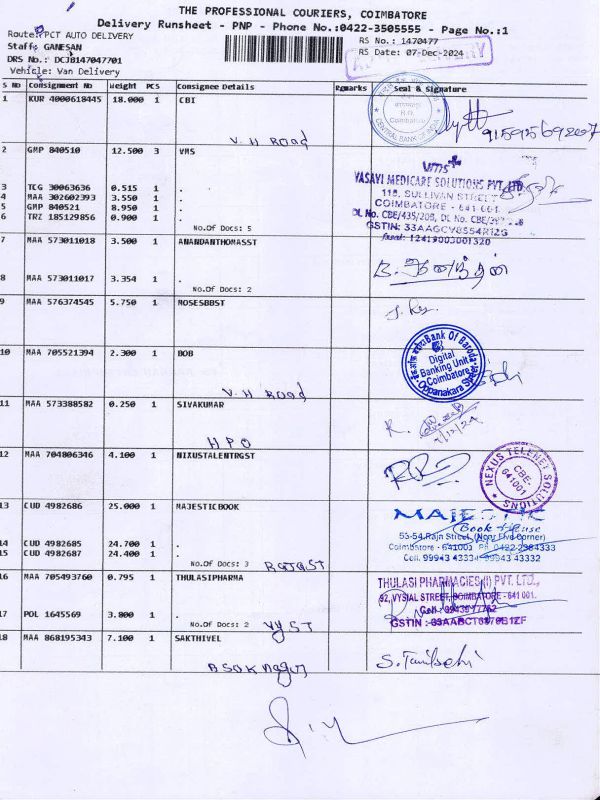 THE PROFESSIONAL COURIERS, COIMBATORE
Delivery Runsheet - PNP - Phone No.:0422-3505555 - Page No.:1
Route: PCT AUTO DELIVERY
Staff: GANESAN
DRS No.: DCJB147047701
Vehicle: Van Delivery
RS No.: 1470477
RS Date: 07-Dec-2024
S No Consignment No Weight PCS Consignee Details Remarks Seal & Signature
1 KUR 4000618445 18.000 1 CBI
CENTRAL BANK OF INDIA
R.O.
Coimbatore
V.H Road
2 GMP 840510 12.500 3 VMS
3 TCG 30063636 0.515 1 .
4 MAA 302602393 3.550 1 .
5 GMP 840521 8.950 1 .
6 TRZ 185129856 0.900 1 .
No.Of Docs: 5
vms
VASAVI MEDICARE SOLUTIONS PVT. LTD
118, SULLIVAN STREET
COIMBATORE - 641 001.
DL No. CBE/435/20B, DL No. CBE/
GSTIN: 33AAGCV8554R1ZG
fssai: 12419003001320
7 MAA 573011018 3.500 1 ANANDANTHOMASST
8 MAA 573011017 3.354 1 .
No.Of Docs: 2
9 MAA 576374545 5.750 1 MOSESBBST
10 MAA 705521394 2.300 1 BOB
Bank Of Baroda
Digital
Banking Unit
Coimbatore
Oppanakara Street
V.H Road
11 MAA 573388582 0.250 1 SIVAKUMAR
7/12/24
HPO
12 MAA 704806346 4.100 1 NIXUSTALENTRGST
NEXUS TELENET SOLUTIONS
CBE-
641001
13 CUD 4982686 25.000 1 MAJESTICBOOK
14 CUD 4982685 24.700 1 .
15 CUD 4982687 24.400 1 .
No.Of Docs: 3 RajaST
MAJESTIC
Book House
53-54, Raja Street, (Near Five Corner)
Coimbatore - 641001 Ph: 0422-2384333
Cell: 99943 43334 99943 43332
16 MAA 705493760 0.795 1 THULASIPHARMA
17 POL 1645569 3.800 1 .
No.Of Docs: 2 VyST
THULASI PHARMACIES (I) PVT. LTD.,
92, VYSIAL STREET, COIMBATORE - 641 001.
18 MAA 868195343 7.100 1 SAKTHIVEL
ASOK Nagar